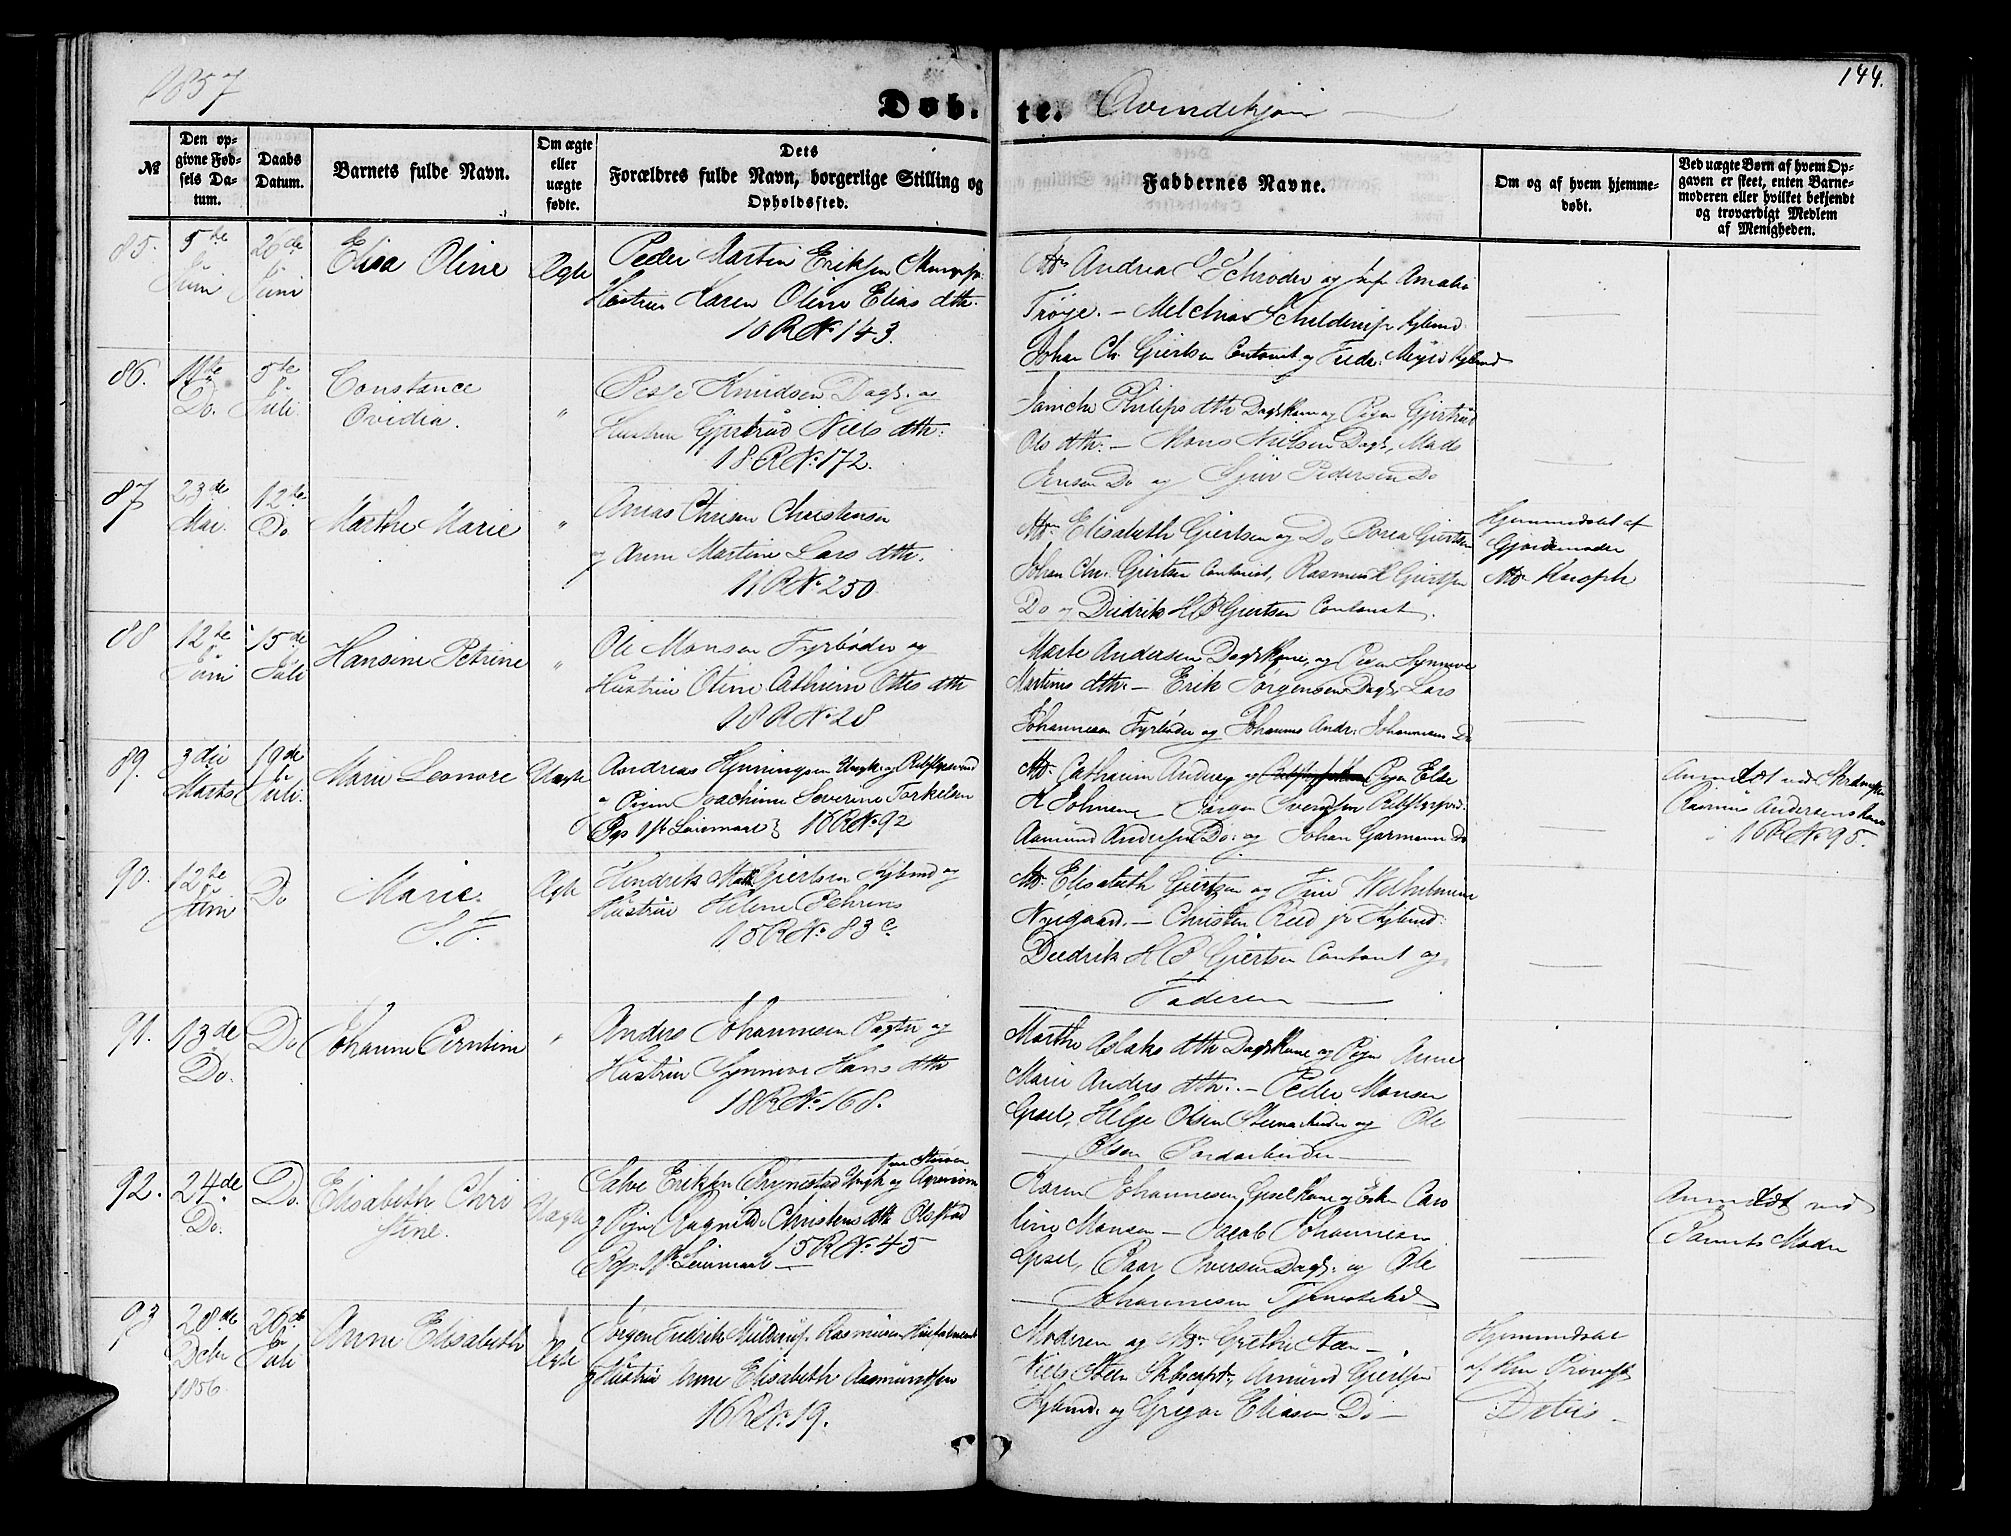 1857
144.
Døb.
te.
Qvindekjøn
№
Den op-
givne Fød-
sels Da-
tum.
Daabs
Datum.
Barnets fulde Navn.
Om ægte
eller
uægte
fødte.
Dets
Forældres fulde Navn, borgerlige Stilling og
Opholdssted.
Faddernes Navne.
Om og af hvem hjemme-
døbt.
Ved uægte Børn af hvem Op-
gaven er skeet, enten Barne-
moderen eller hvilket bekjendt
og troværdigt Medlem
af Menigheden.
85.
5te
Juni
26de
Juni
Elisa Oline
Ægte
Peder Martin Eriksen
Hustrue Karen Oline Elias dtr.
10 R No 143.
Md. Andrea Schrøder og Amalia
Trøye. — Melchior Schelderup Kjbmd
Johan Ch. Giertsen Contorist og Fredr. Meyer Kjbmd
86.
11te
Do.
5te
Juli
Constance
Ovidia.
"
Peder Knudsen Dags. og
Hustrue Gjertrud Niels dtr.
18 R No 172.
Janiche Philips dtr Dagskone og Pigen Gjertrud
Ols dtr. — Mons Nielsen Dags, Mads
Jensen Do og Sjur Pedersen Do
87
23de
Mai.
12te
Do
Marthe Marie
"
Anias Chrisen Christensen
og Anne Martine Lars dtr.
11 R No 250
Md. Elisabeth Giertsen og Do Rosea Giertsen
Johan Chr. Giertsen Contorist, Rasmus R Giertsen
Do og Diedrik H B Giertsen Contorist.
Hjemmedøbt af
Gjordemoder
Md. Knoph
88
12te
Juni
15de
Juli
Hansine Petrine
"
Ole Monsen Fyrbøder og
Hustrue Oline Cathrine Ottes dtr
18 R No 28
Marte Andersen Dagskone, og Pigen Synneve
Martines dtr. — Erik Jørgensen Dags, Lars
Johannesen Fyrbøder og Johannes Andr. Johannesen Do
89.
3die
Marts
19de
Juli.
Marie Leonore
Uægte
Andreas Henningsen Ungk. og Rebslagersvend
og Pigen Joachime Severine Torkelsen
Bgs 1ste Leiermaal 16 R No 92
Md. Cathrine Andrea og Pigen Else
K Johnsen — Jørgen Svendsen Rebslagersvend
Aamund Andersen Do: og Johan Garmann Do
Anmeldt ved
Rasmus Andersens Kone
i 16 R No 95.
90.
12te
Juni
Do
Marie.
S. F.
Ægte
Hendrik Giertsen Kjbmd og
Hustrue Helene Behrens
15 R No 83 c.
Md. Elisabeth Giertsen og Frue Wilhelmine
Nygaard. — Christen Reed jr Kjbmd.
Diedrik H B Giertsen Contorist og
Faderen
91.
13de
Do.
Do
Johanne Berntine
"
Anders Johannesen Pagter og
Hustrue Synneve Hans dtr
18 R No 168.
Marthe Aslaks dtr Dagskone og Pigen Anne
Marie Anders dtr. — Peder Monsen
Gsel, Helge Olsen Steenarbeider og Ole
Olsen Jordarbeider
92.
24de
Do.
Do.
Elisabeth Chri
stine.
Uægte
Salve Eriksen Brynestad Ungk. og
og Pigen Ragnilde Christens dtr Olstad
Bgs. 1ste Leiermaal — 5 R No 45
Karen Johannesen Gselkone og Enke Caro
line Monsen — Jacob Johannesen
Gsel, Paar Iversen Dags: og Ole
Johannesen Tjenestekarl
Anmeldt ved
Barnets Moder
93
28de
Debr
1856.
26de
Juli
Anne Elisabeth
Ægte
Jørgen Fredrik Rasmusen
og Hustrue Anne Elisabeth Aamundsen
16 R No 19.
Moderen og Md. Grethe Steen —
Niels Steen Skibscapt., Amund Giertsen
Kjbmd. og Gregor Eliasen Do —
Hjemmedøbt
af Hr. Provst
Daviis —